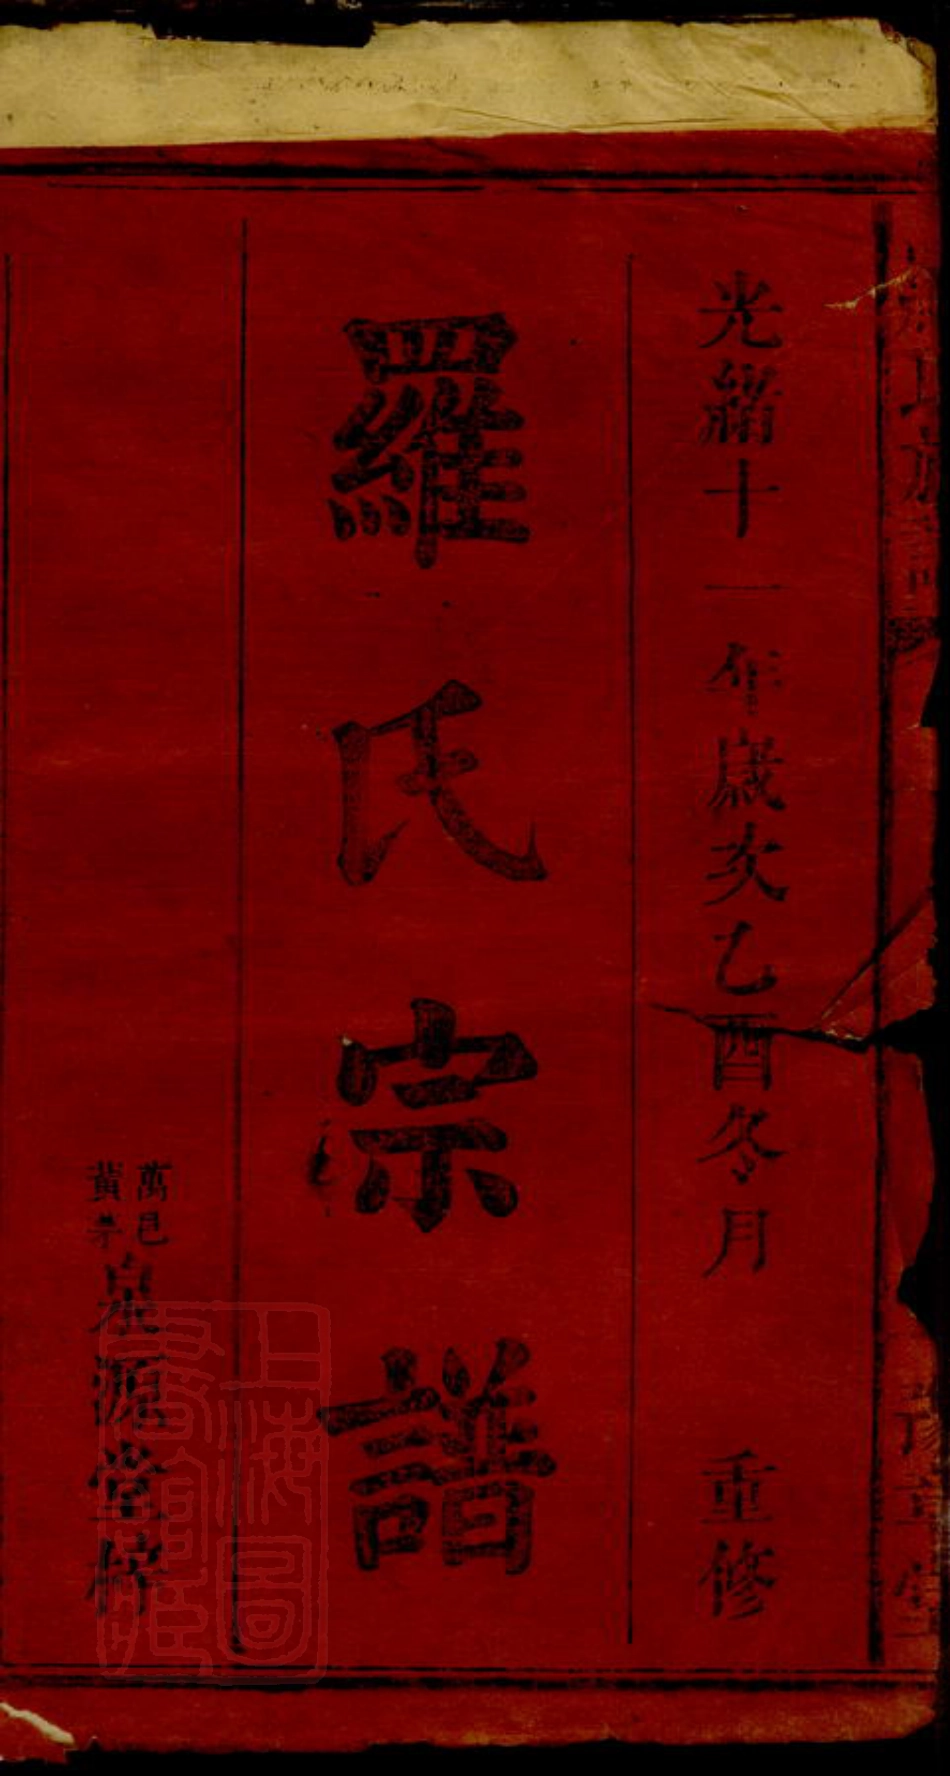 光緒十一年歲次乙酉冬月 重修
羅氏宗譜
萬邑
黃茅
泉源堂修
上海圖書館藏